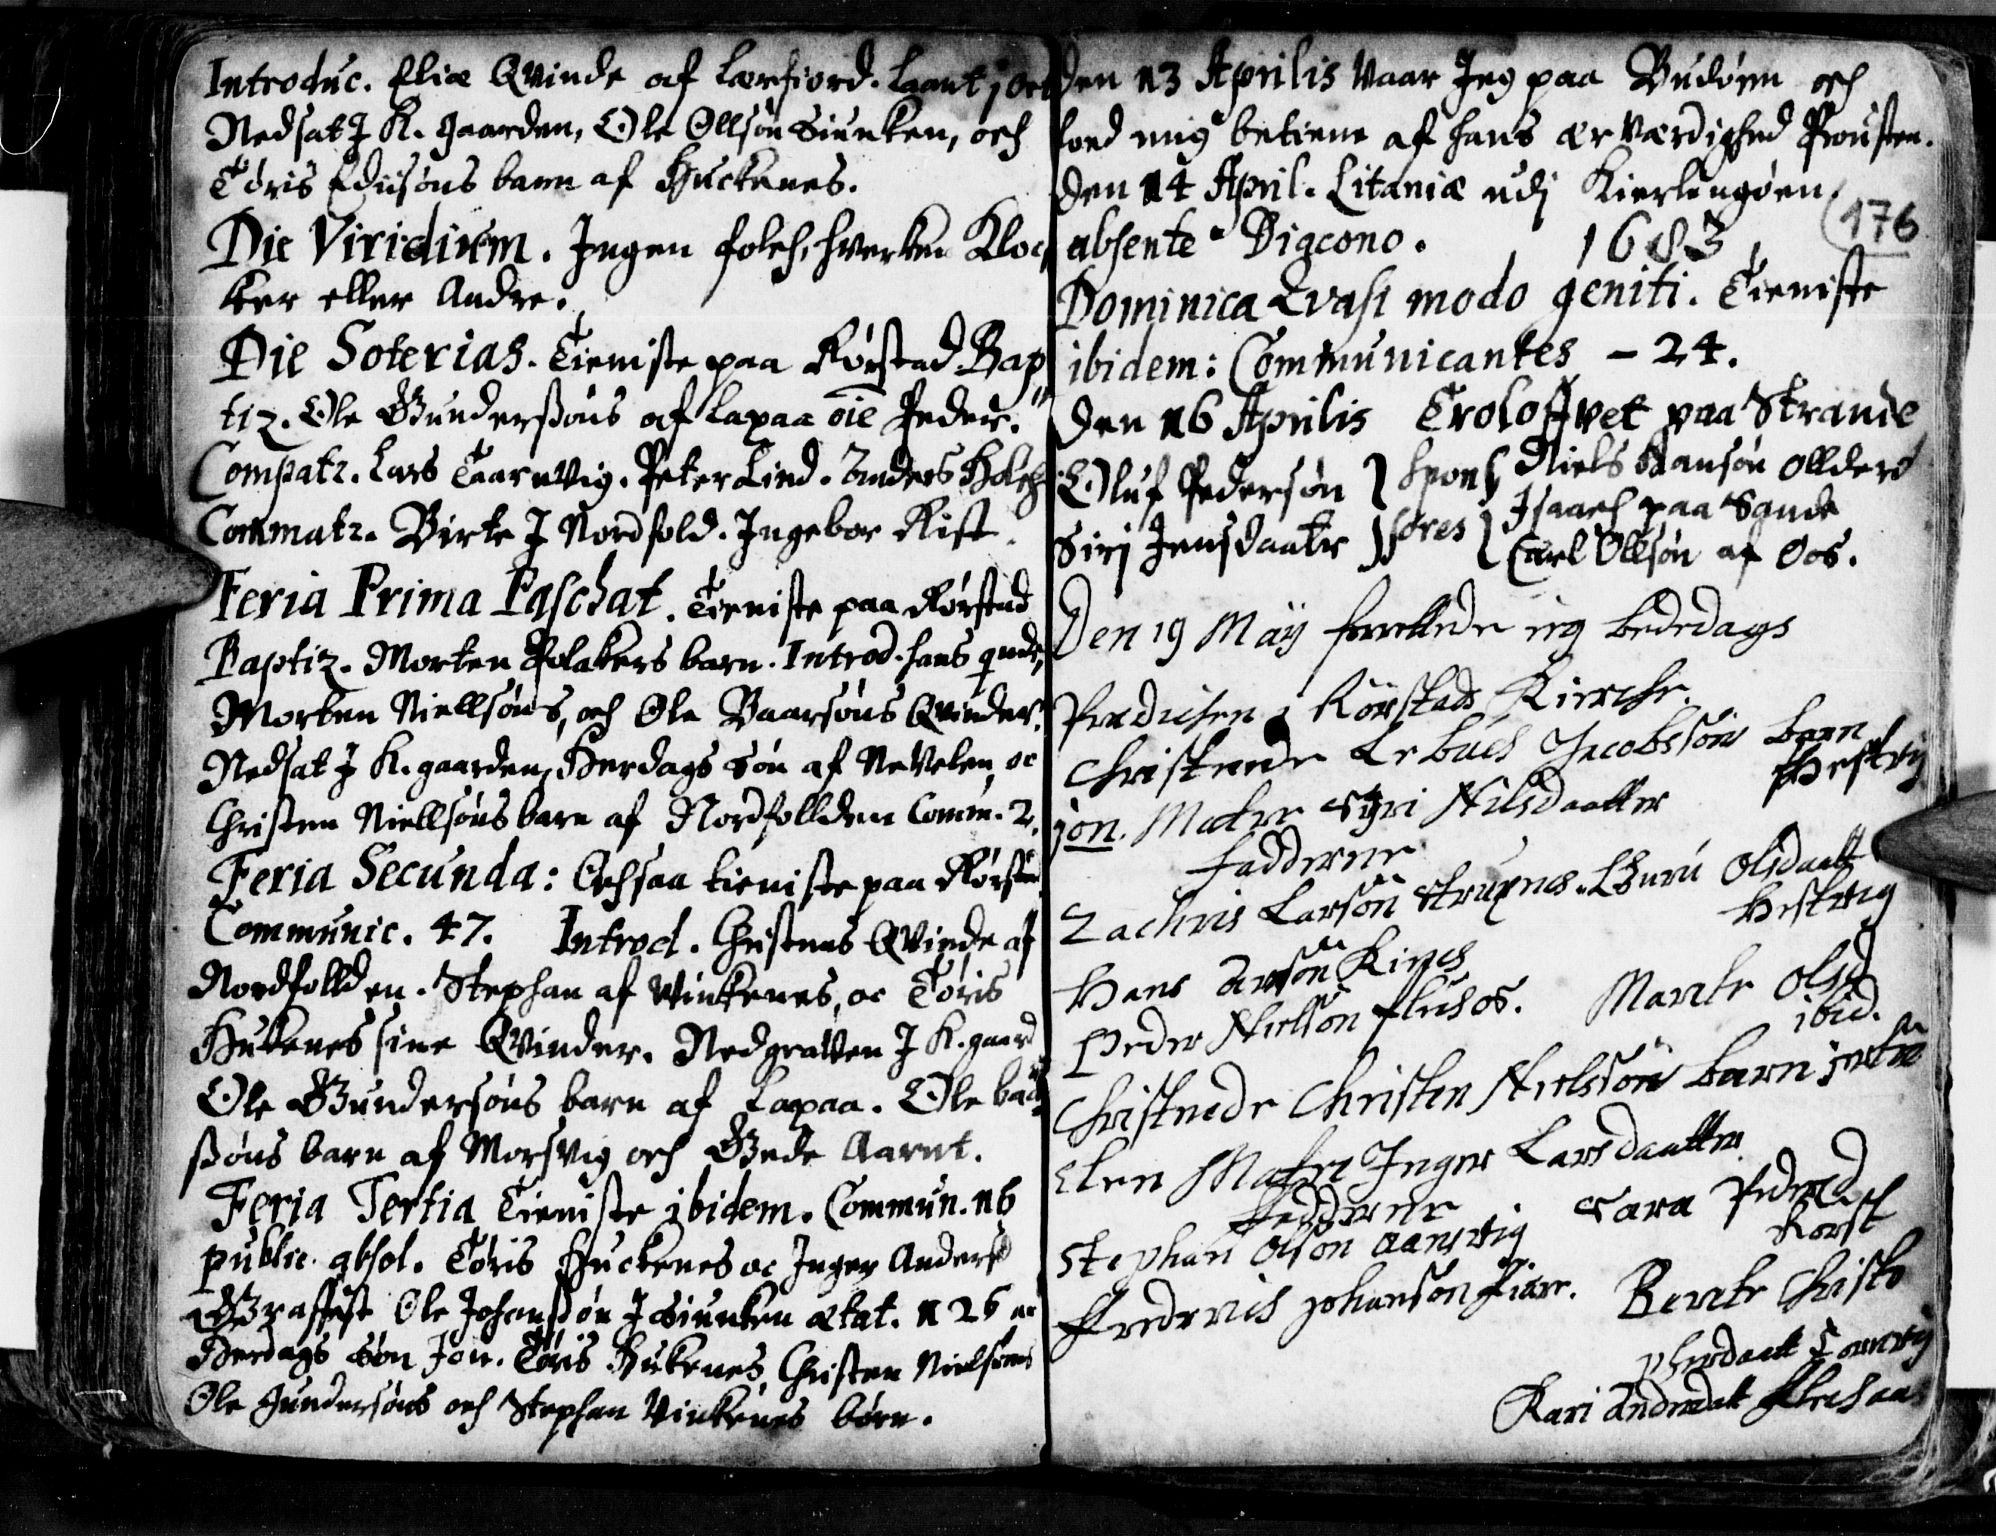 Introduc. Eliæ Qvinde af Leerfiord. Laant jord
Nedsat J K. gaarden, Ole Ollsøn Siunken, och
Tøris Ediisøns barn af Huckenes.
Die Viridium. Ingen folch, hverken Kloc,
ker eller Andre.
Die Soterias. Tieniste paa Rørstad Bap,
tiz. Ole Gunderssøns af Lapaa øie Peder.
Compatr. Lars Taarnvig. Peter Lind. Anders Holch
Commatr. Birte J Nordfold. Ingebor Rist.
Feria Prima Paschat. Tieniste paa Rørstad
Baptiz. Morten Folakers barn. Introd. hans qnde,
Morten Niellsøns, och Ole Baarsøns Qvinder.
Nedsat J K. gaarden, Herdags Søn af Nevelen, oc
Christen Niellsøns barn af Nordfollden Comm. 2.
Feria Secunda: Ochsaa tieniste paa Rørstad
Communic. 47. Introd. Christens Qvinde af
Nordfollden. Stephan af Vinkenes, oc Tøris
Hukenes sine Qvinder. Nedgratten J K. gaard
Ole Gundersøns barn af Lapaa. Ole baar
ssøns barn af Morsvig och Gede Aarnt.
Feria Tertia Tieniste ibidem. Commun. 16
public. absol. Tøris Huckenes oc Inger Andersd
Graffest Ole Johanssøn J Siunken ætat. 126 ar
Herdags Søn Jon. Tøris Hukenes, Christen Nielsøns
Ole Gundersøns och Stephan Vinkenes børn.
Den 13 Aprilis Vaar Jeg paa Budøen och
loed mig betiene af hans ærværdighed Prousten.
Den 14 April. Litaniæ udj Kierlingøen
176
absente Diacono. 1683
Dominica Qvasi modo geniti. Tieniste
ibidem: Communicantes - 24.
Den 16 Aprilis Trolofvet paa Strande
Oluf Pedersøn } spon { Niels Hansøn ollderø
Isaach paa Sande
Siri Jensdaatr } sores { Carl Ollsøn af Oos.
Den 19 Maÿ forrettede ieg bededags
Prædichen i Rørstads Kierche.
Christnede Lr buch Jacobssøns barn
jon. Mater Sÿri Nilsdaatter Hestvig
Fadderne
Zachris Larsøn Strupnes. Guru Olsdaatt
Hestvig
Hans Arnsøn Kines
Peder Nielsøn Flechos. Marite Olsd
ibid.
Christnede Christen Nielssøns barn
Elen Mater Inger Larsdaatter.
Fadderne
Stephan Olson Aansvig Sara Pedersd
Rorst
Frederich Johanson Fiære. Berete Christo
pherdaatt Tornvig
Kari Andredatt Flechaas